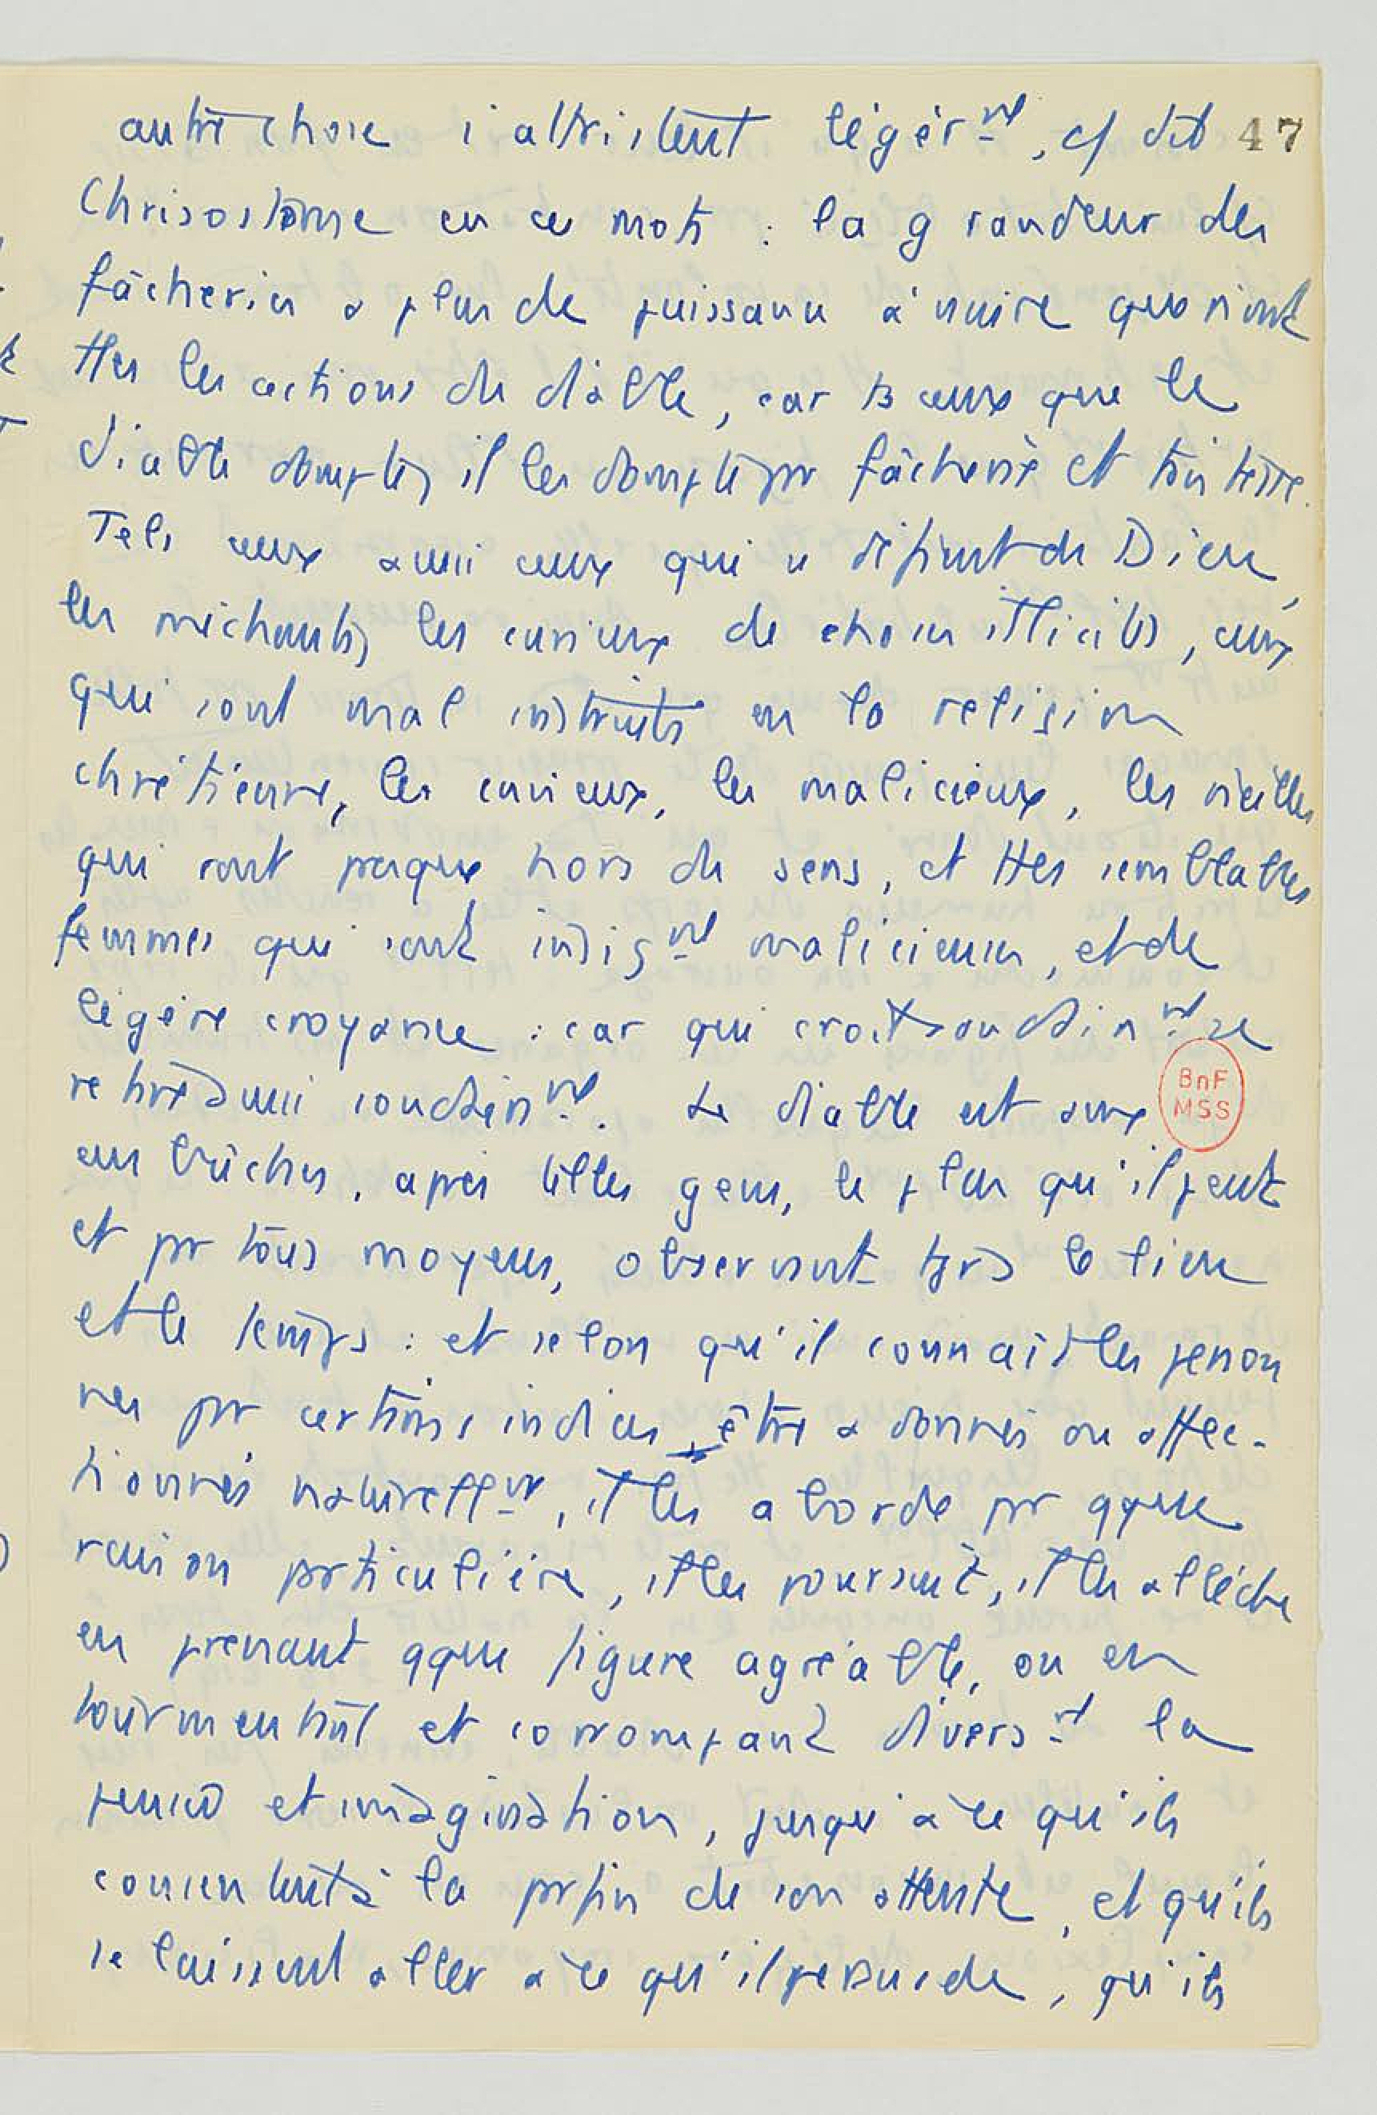 autre chose s'attristent légèrmt, cf dit 47
Chrisostome en ces mots : la grandeur des
fâcheries a plus de puissance à nuire que n'ont
ttes les actions du diable, car ts ceux que le
diable dompte, il les dompte pr fâcherie et tristesse.
Tels ceux aussi ceux qui se défient de Dieu,
les méchants, les curieux de choses illicites, ceux
qui sont mal instruits en la religion
chrétienne, les envieux, les malicieux, les vieilles
qui sont presque hors du sens, et ttes semblables
femmes qui sont insignmt malicieuses, et de
légère croyance : car qui croit soudainmt se
retire aussi soudainmt. Le diable est aux
embûches, après telles gens, le plus qu'il peut
et pr tous moyens, observant tjrs le lieu
et le temps : et selon qu'il connaît les person
nes pr certains indices être adonnés ou affec-
tionnés naturellmt, il les aborde pr qque
raison particulière, il les poursuit, il les allèche
en prenant qque figure agréable, ou en
tourmentant et corrompant diversmt la
pensée et imagination, jusqu'à ce qu'ils
consentent à la prfin de son attente, et qu'ils
se laissent aller à ce qu'il persuade, qu'ils
BnF
MSS